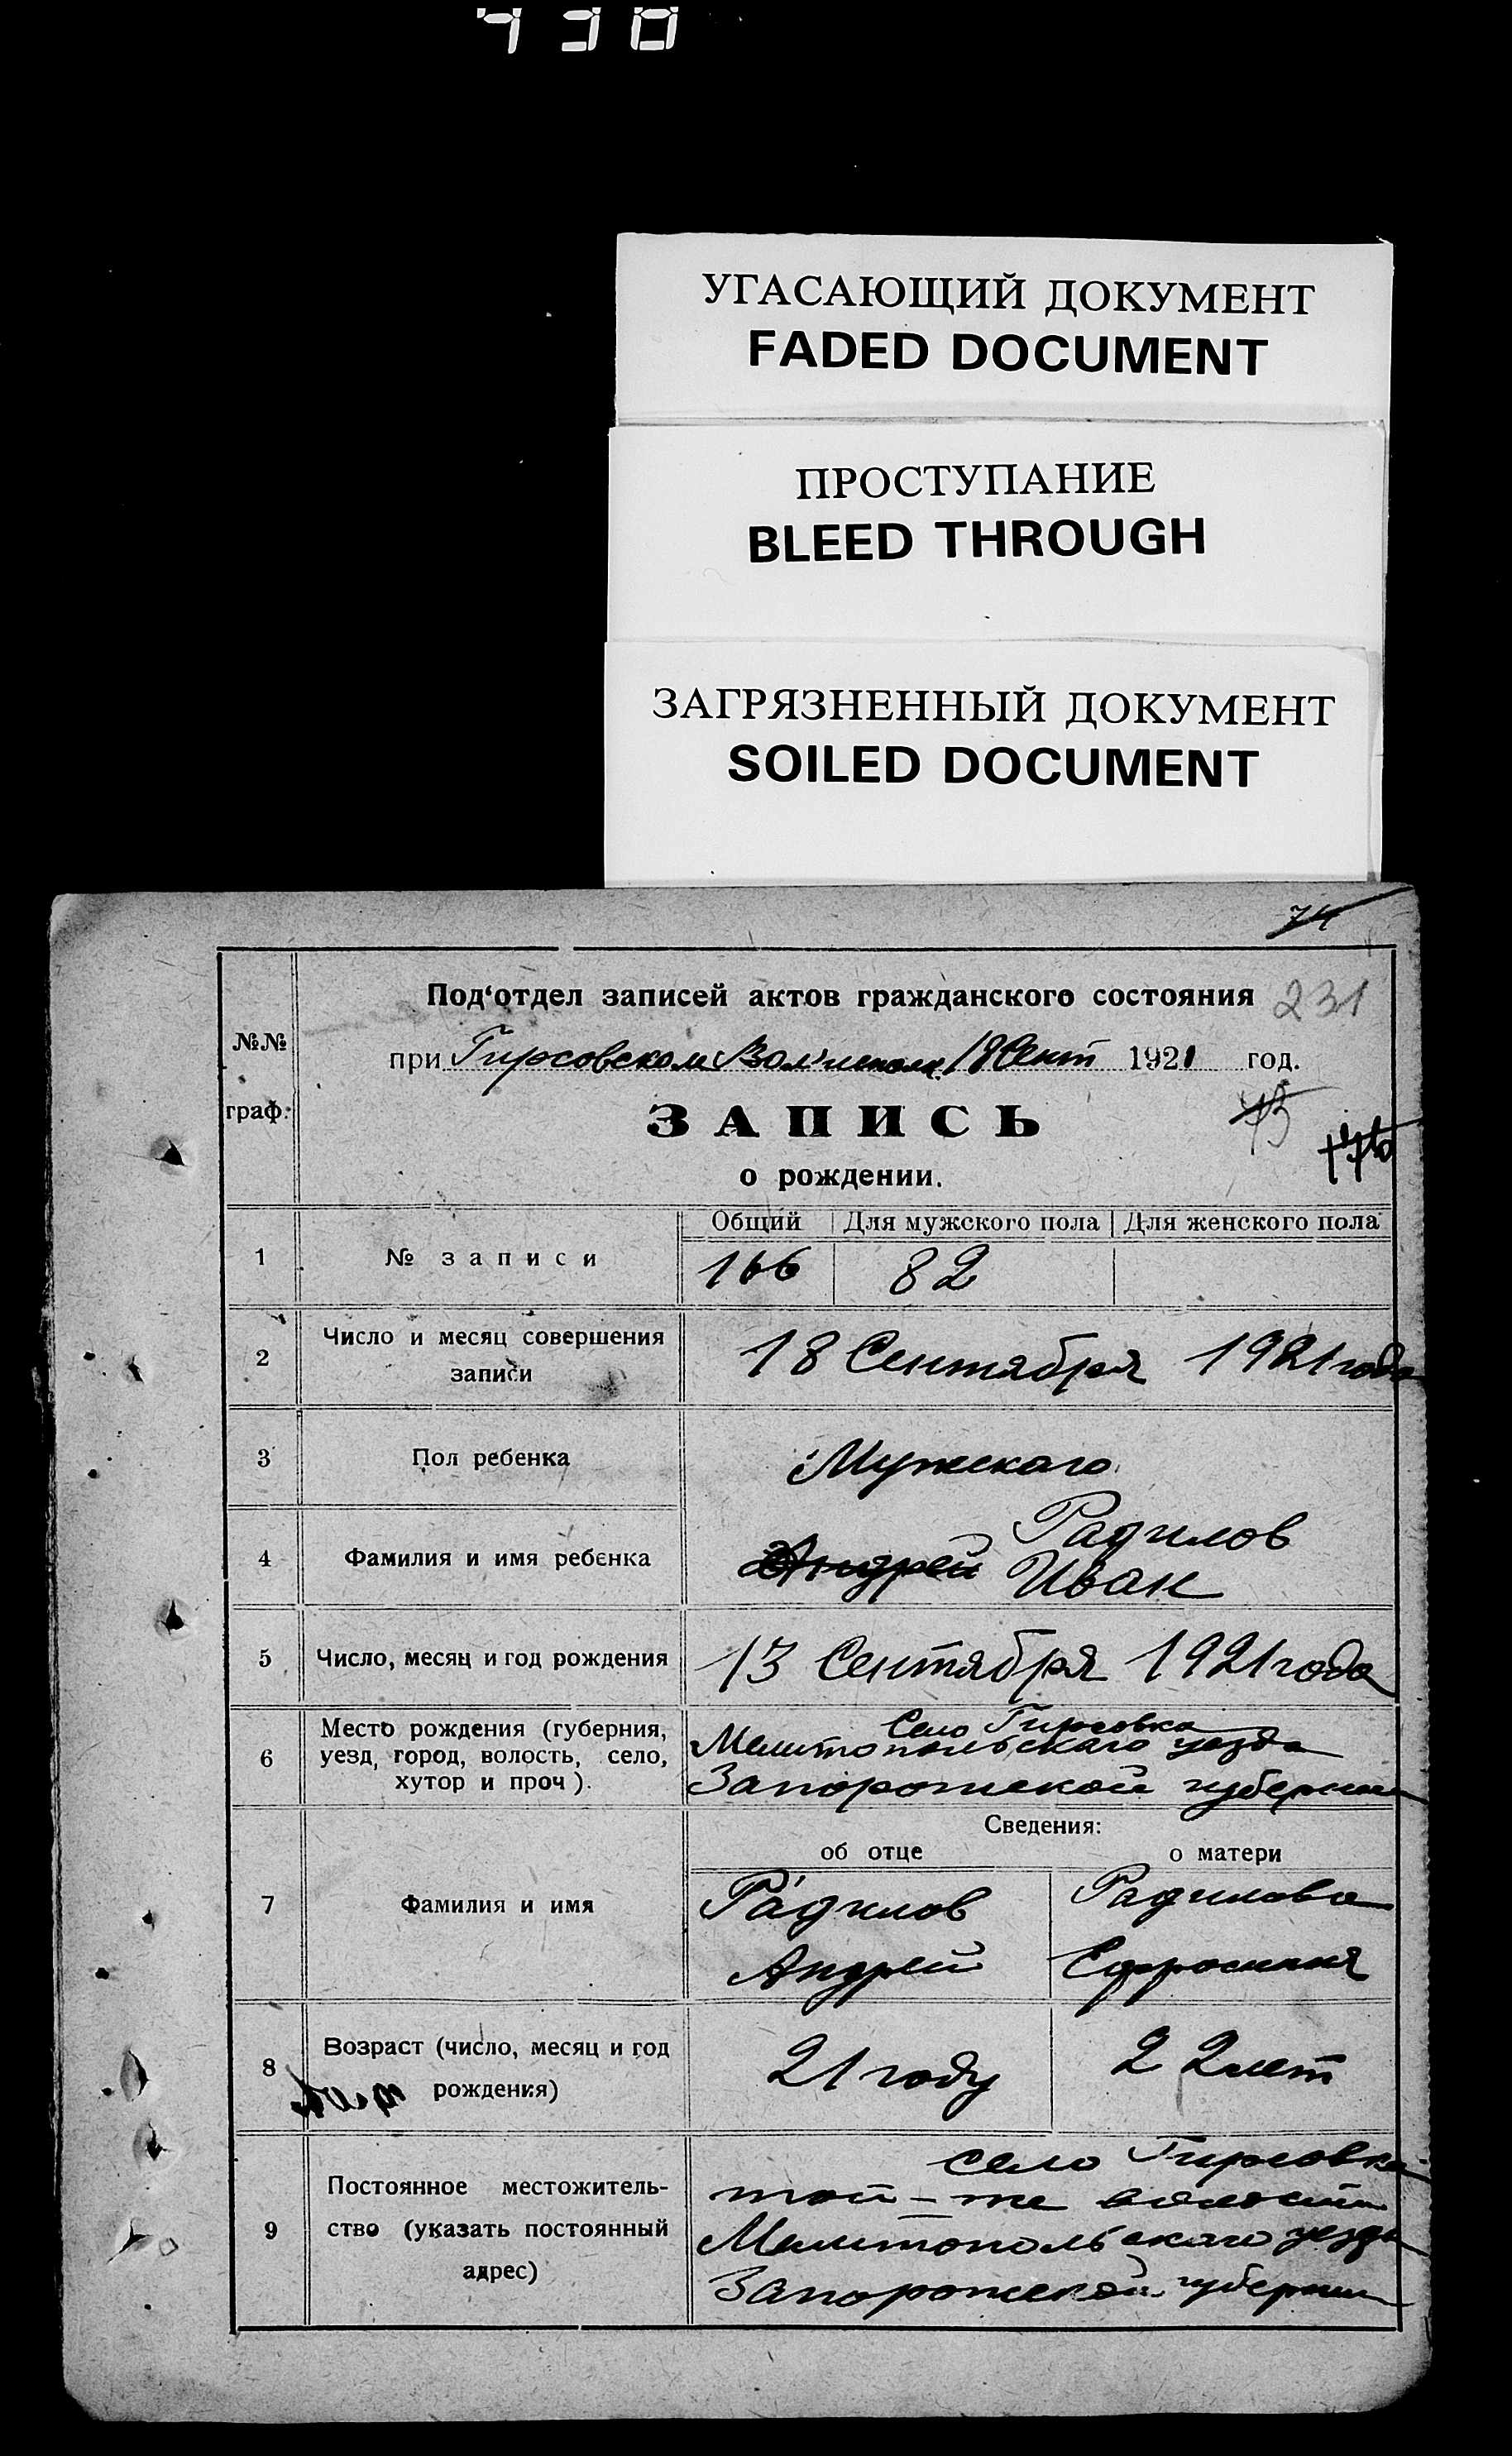 430
УГАСАЮЩИЙ ДОКУМЕНТ
FADED DOCUMENT
ПРОСТУПАНИЕ
BLEED THROUGH
ЗАГРЯЗНЕННЫЙ ДОКУМЕНТ
SOILED DOCUMENT
74
Под‘отдел записей актов гражданского состояния 231
№№
при Гирсовском 18 Сент 1921 год.
граф.
ЗАПИСЬ
73
о рождении.
Общий Для мужского пола Для женского пола
1 № записи 166 82
2 Число и месяц совершения
записи
18 Сентября 1921 года
3 Пол ребенка Мужскаго
4 Фамилия и имя ребенка
Радилов
Андрей Иван
5 Число, месяц и год рождения 13 Сентября 1921 года
6 Место рождения (губерния,
уезд, город, волость, село,
хутор и проч).
Село Гирсовка
Мелитопольскаго уезда
Запорожской губернии
Сведения:
об отце о матери
7 Фамилия и имя
Радилов Радилова
Андрей Ефросиния
8 Возраст (число, месяц и год
рождения)
21 году 22 лет
9 Постоянное местожитель-
ство (указать постоянный
адрес)
село Гирсовка
той-же волости
Мелитопольскаго уезда
Запорожской губернии